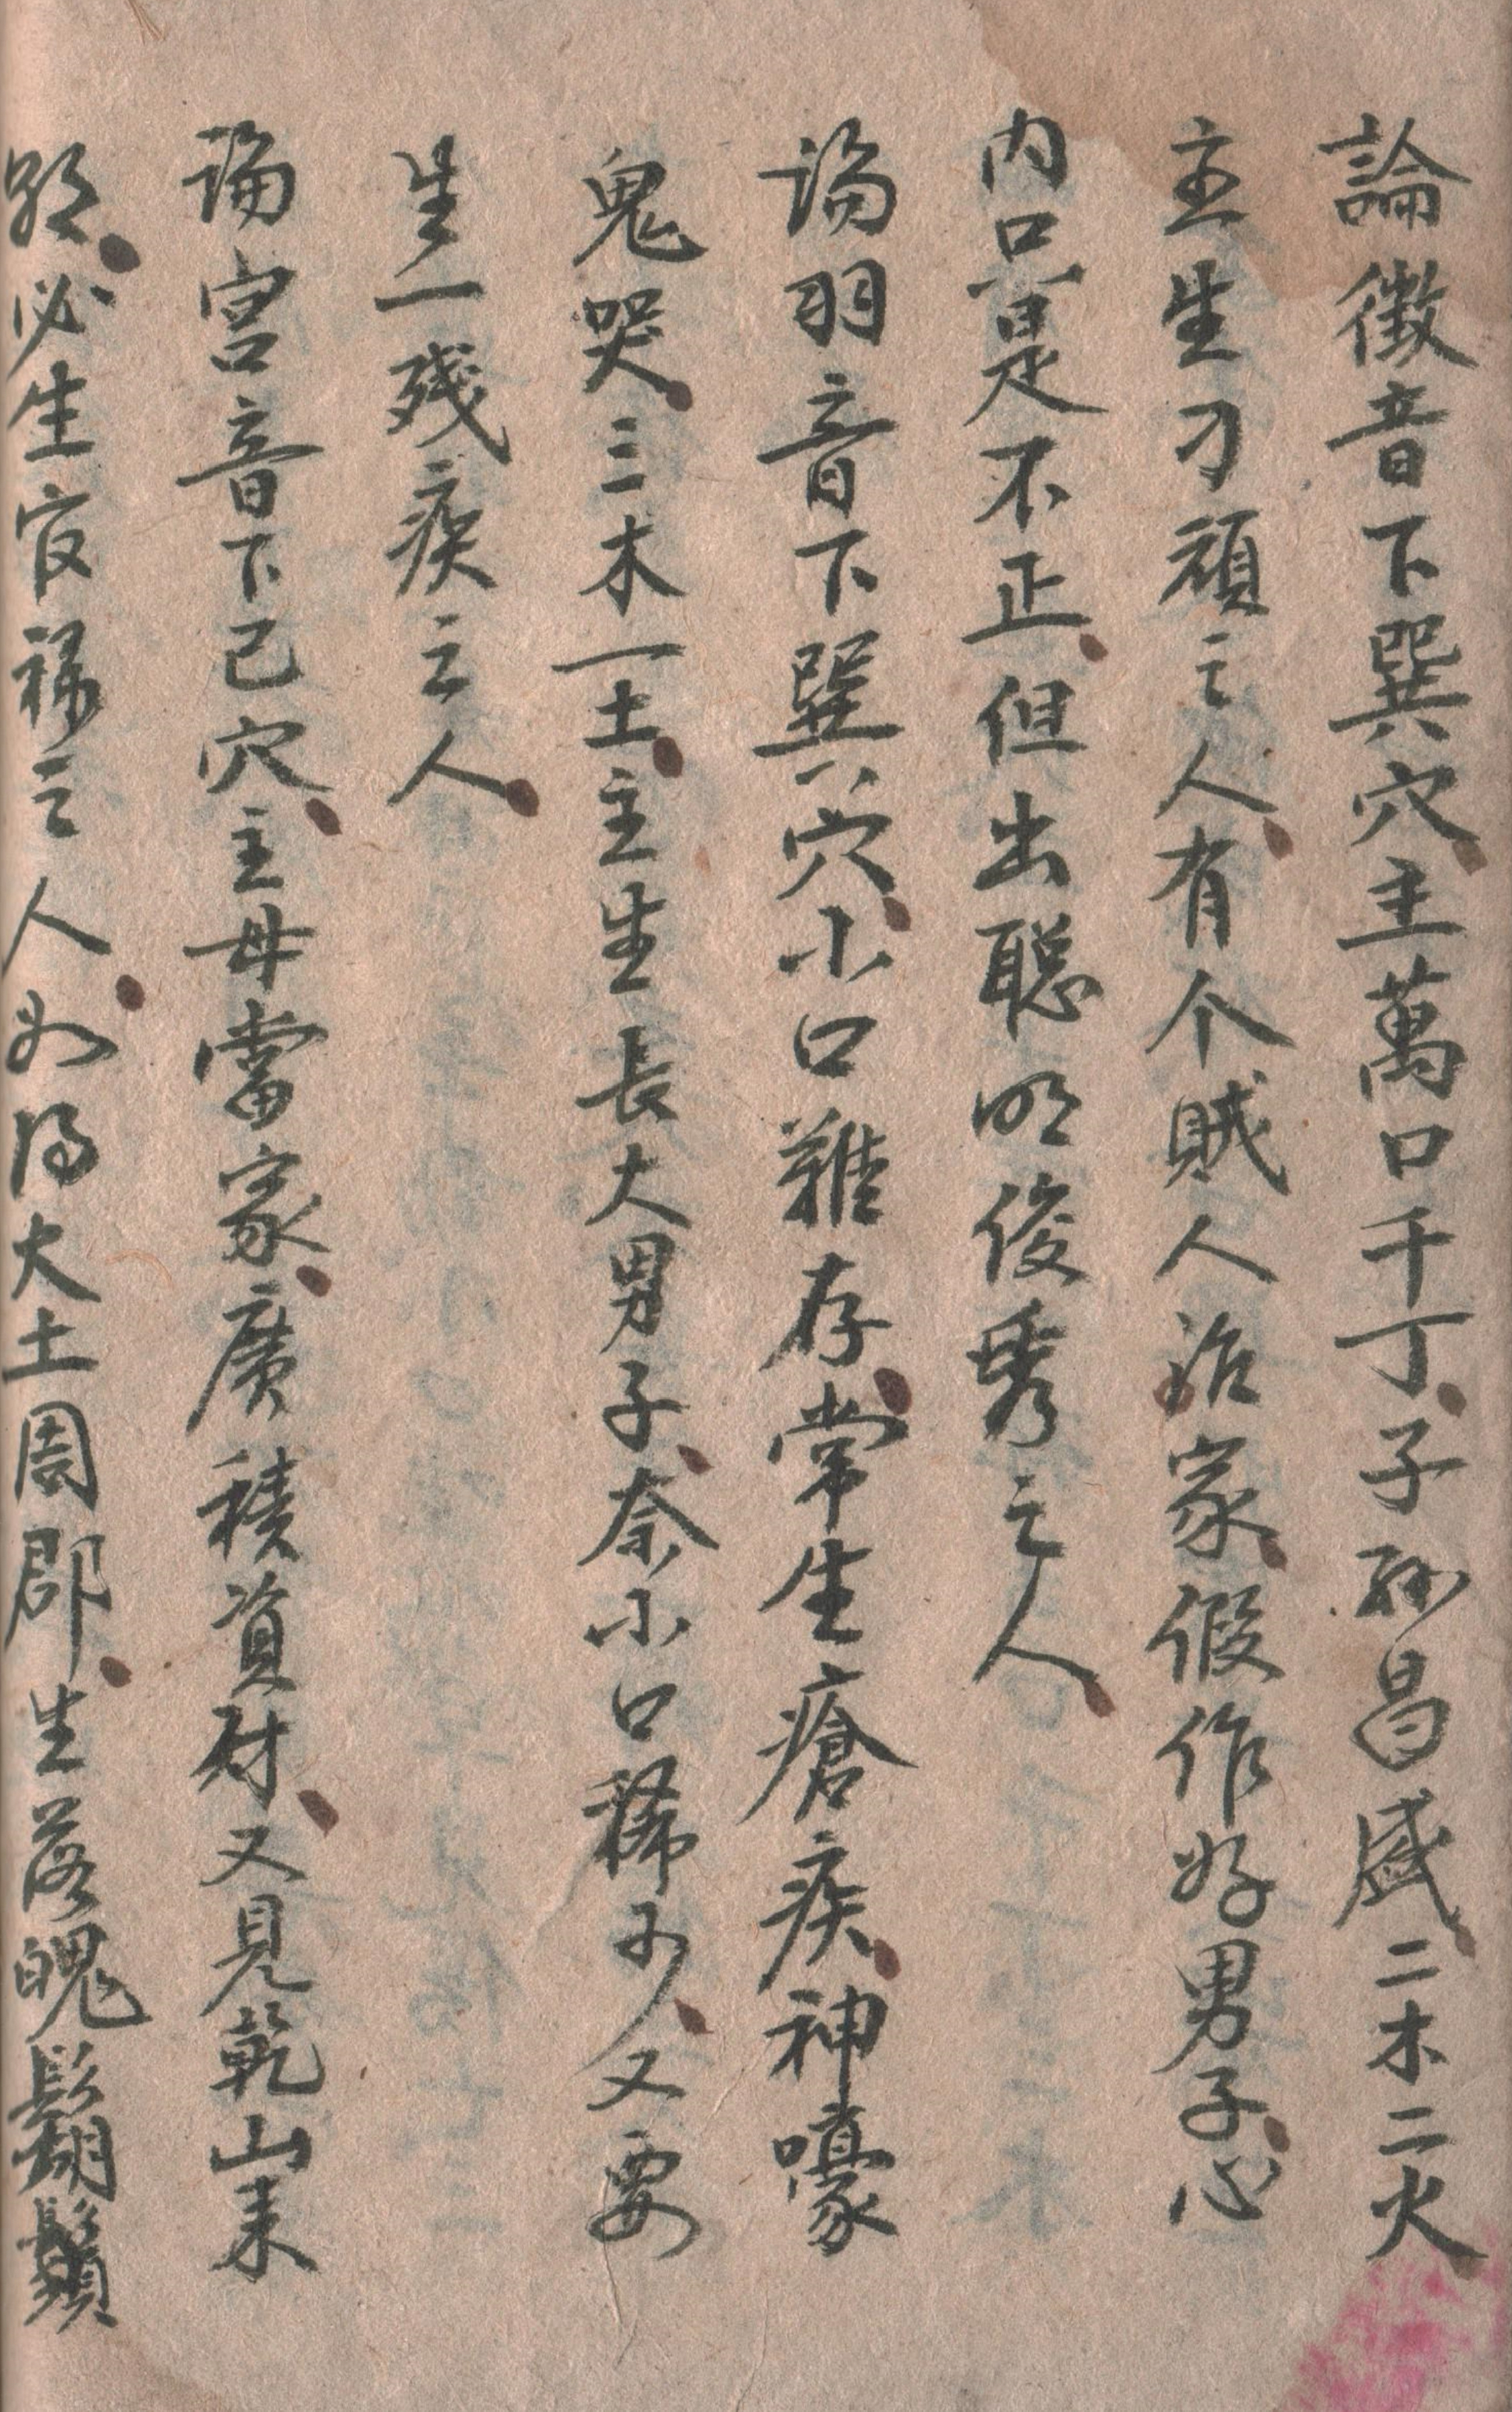 論徵音下巽穴主萬口千丁子孫昌盛二木二火
主生刁頑之人有个賊人治家假作好男子心
内口是不正但出聪明俊秀之人
論羽音下巽穴小口難存常生瘡疾神嚎
鬼哭三木一土主生長大男子奈小口稀少又要
生一残疾之人
論宮音下己穴主母當家廣積資财又見乾山来
必生官禄之人如得大土周郡生落魄鬍鬚